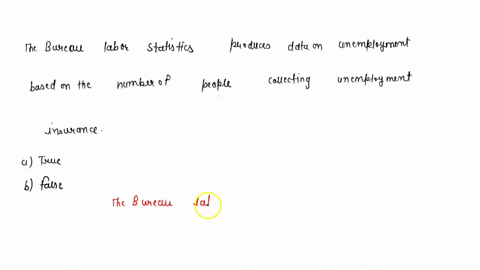 The Bureau labor Statistics produces data on unemployment
based on the number of people collecting unemployment
insurance.
a) True
b) False
The Bureau lal